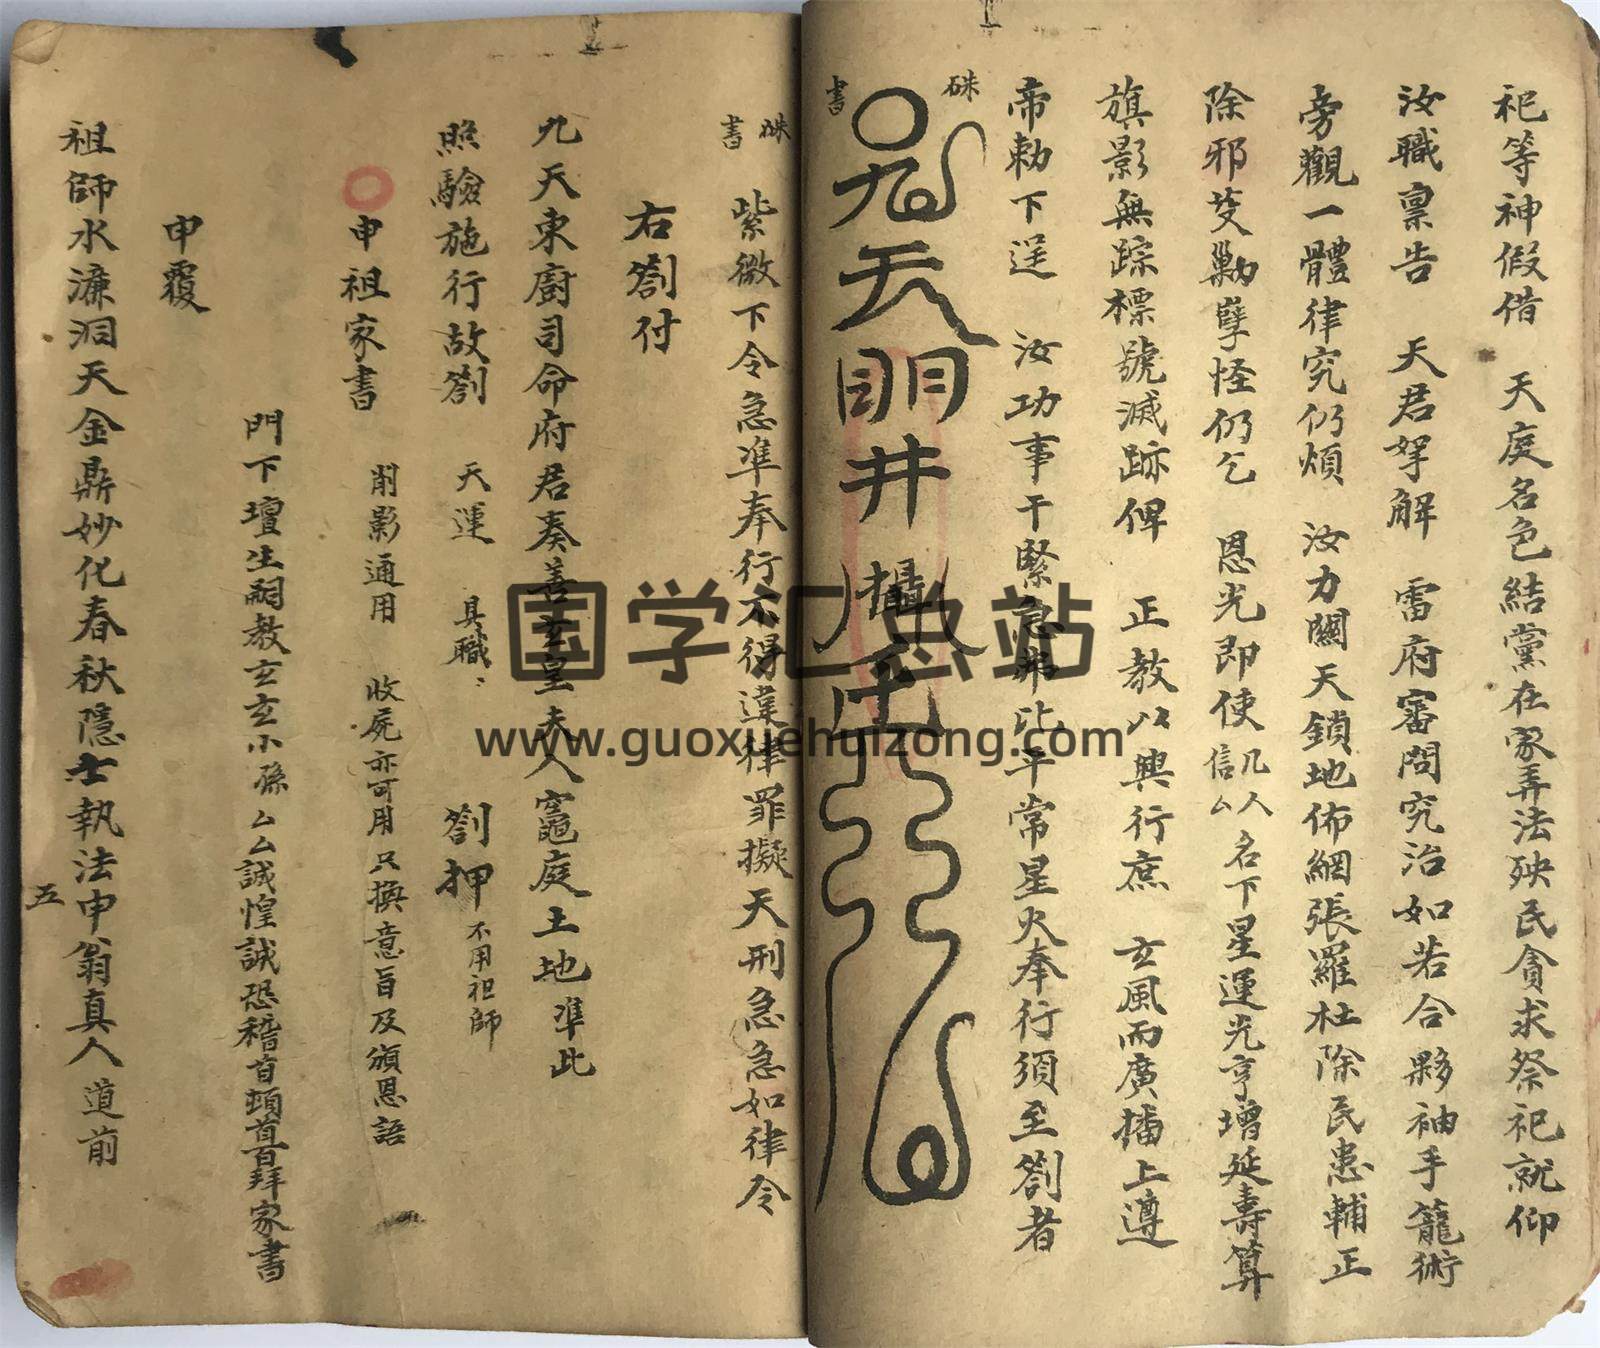 祀等神假借　天庭名色結黨在家弄法殃民貪求祭祀就仰
汝職稟告　天君拏解　雷府審問究治如若合夥袖手籠術
旁觀一體律究仍煩　汝力關天鎖地佈網張羅杜除民患輔正
除邪芟勦孽怪仍乞　恩光即使信厶凡人名下星運光亨增延壽算
旗影無踪標號滅跡俾　正教以興行庶　玄風而廣播上遵
帝勅下逞　汝功事干緊急弗比平常星火奉行須至劄者
硃書
九天明井攝
硃書
紫微下令急準奉行不得違律罪擬天刑急急如律令
右劄付
九天東廚司命府君奏善玄皇夫人竈庭土地　準此
照驗施行故劄　天運　具職　劄押　不用祖師
申祖家書　削影通用　收屍亦可用只換意旨及頒恩語
門下壇生嗣教玄玄小孫厶厶誠惶誠恐稽首頓首百拜家書
申覆
祖師水濂洞天金鼎妙化春秋隱士執法申翁真人　道前
五
国学汇总站
www.guoxuehuizong.com